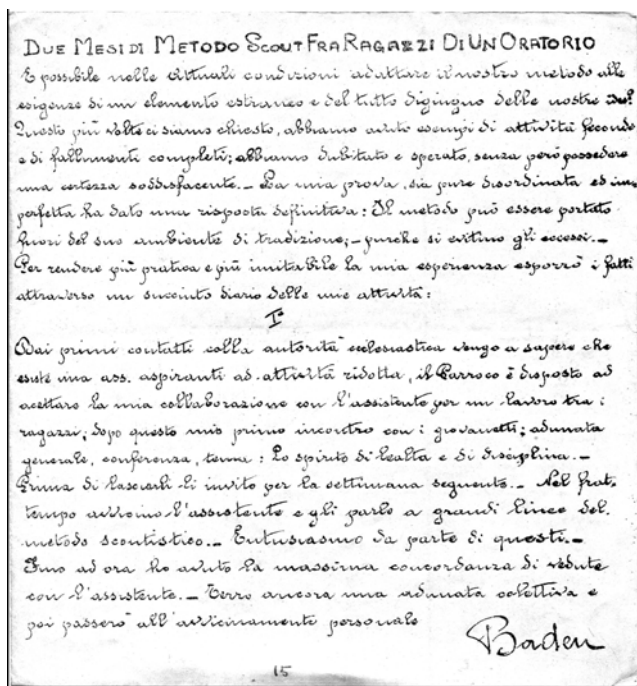 DUE MESI DI METODO SCOUT FRA RAGAZZI DI UN ORATORIO
È possibile nelle attuali condizioni adattare il nostro metodo alle
esigenze di un elemento estraneo e del tutto digiuno delle nostre
Questo più volte ci siamo chiesto, abbiamo avuto esempi di attività fecondo
e di fallimenti completi; abbiamo dubitato e sperato, senza però possedere
una certezza soddisfacente. – La mia prova, sia pure disordinata ed im
perfetta ha dato una risposta definitiva: Il metodo può essere portato
fuori del suo ambiente di tradizione; – purchè si evitino gli eccessi. –
Per rendere più pratica e più imitabile la mia esperienza esporrò i fatti
attraverso un succinto diario delle mie attività:
I°
Dai primi contatti colla autorità ecclesiastica vengo a sapere che
esiste una ass. aspiranti ad attività ridotta, il Parroco è disposto ad
accettare la mia collaborazione con l'assistente per un lavoro tra i
ragazzi; dopo questo mio primo incontro con i giovanetti; adunata
generale, conferenza, tema: Lo spirito di lealtà e di disciplina. –
Prima di lasciarli li invito per la settimana seguente. – Nel frat.
tempo avvicino l'assistente e gli parlo a grandi linee del.
metodo scoutistico. – Entusiasmo da parte di questi. –
Fino ad ora ho avuto la massima concordanza di vedute
con l'assistente. – Terrò ancora una adunata colettiva e
poi passerò all'avvicinamento personale
Baden
15